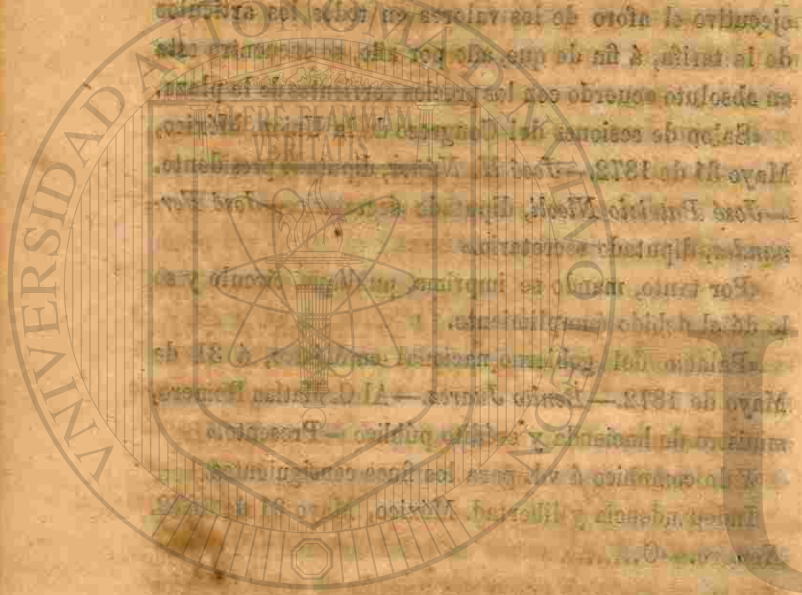 ejecutivo el aforo de los valores en todos los artículos
de la tarifa, á fin de que, año por año, se encuentre esta
en absoluto acuerdo con los precios corrientes de la plaza.
«Salon de sesiones del Congreso de la Union. México,
Mayo 31 de 1872.—José diputado presidente.
—José Patricio Nicoli, diputado secretario.—José Fer-
nandez, diputado secretario.»
«Por tanto, mando se imprima, publique, circule y se
le dé el debido cumplimiento.
«Palacio del gobierno nacional en México, á 31 de
Mayo de 1872.—Benito Juarez.—Al C. Matías Romero,
ministro de hacienda y crédito público.—Presente.»
Y lo comunico á vd. para los fines consiguientes.
Independencia y libertad. México, Mayo 31 de 1872.
Romero.—C.
UNIVERSIDAD AUTONOMA DE NUEVO LEON
ALERE FLAMMAM
VERITATIS
U